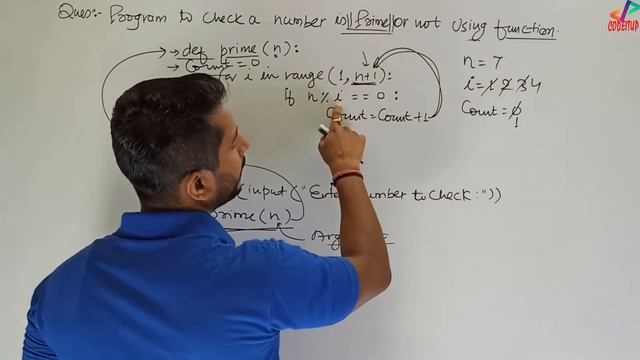 CODEITUP
Ques:- Program to check a number is Prime or not using function.
→ def prime(n):
→ Count = 0
for i in range (1, n+1):
if n % i == 0 :
Count = Count + 1
n = 7
i = 1 2 3 4
Count = 0
1
(input ("Enter number to check :"))
prime(n)